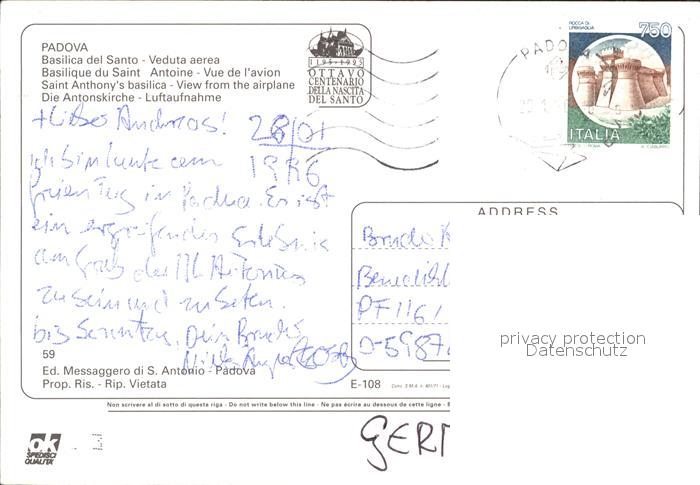 PADOVA
Basilica del Santo - Veduta aerea
Basilique du Saint Antoine - Vue de l'avion
Saint Anthony's basilica - View from the airplane
Die Antonskirche - Luftaufnahme
1195-1995
OTTAVO
CENTENARIO
DELLA NASCITA
DEL SANTO
PADOVA
ROCCA DI
URBISAGLIA
750
ITALIA
+ Lieber Andreas!
ich bin heute am
freien Tag in Padua. Es ist
ein ergreifendes Erlebnis
am Grab des Hl. Antonius
zu sein und zu beten.
bis Sonntag, Dein Bruder
59
Ed. Messaggero di S. Antonio - Padova
Prop. Ris. - Rip. Vietata
ADDRESS
Bruder
PF 116
D-5987
E-108
Non scrivere al di sotto di questa riga - Do not write below this line - Ne pas écrire au dessous de cette ligne -
GER
ok
SPEDISCI
QUALITA'
privacy protection
Datenschutz